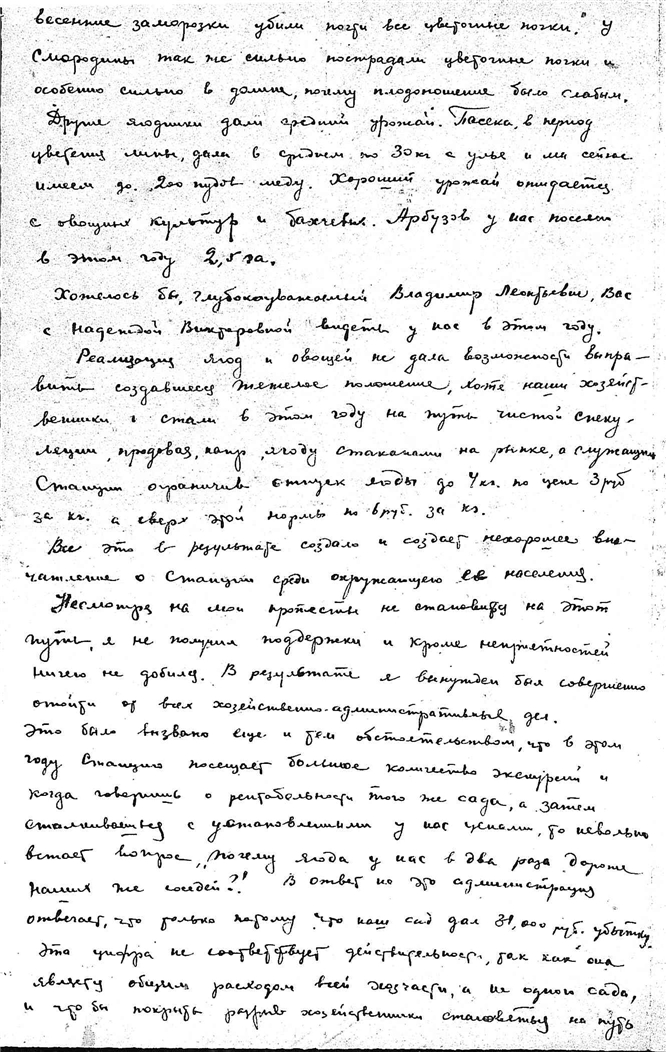 весенние заморозки убили почти все цветочные почки." У
Смородины так же сильно пострадали цветочные почки и
особенно сильно в долине, почему плодоношение было слабым.
Другие ягодники дали средний урожай. Пасека, в период
цветения липы, дала в среднем по 30 кг с улья и мы сейчас
имеем до 200 пудов меду. Хороший урожай ожидается
с овощных культур и бахчевых. Арбузов у нас посеяли
в этом году 2,5 га.
Хотелось бы, глубокоуважаемый Владимир Леонтьевич, Вас
с Надеждой Викторовной видеть у нас в этом году.
Реализация ягод и овощей не дала возможности выпра-
вить создавшееся тяжелое положение, хотя наши хозяйст-
венники и стали в этом году на путь чистой спеку-
ляции, продавая, напр, ягоду стаканами на рынке, а служащим
Станции ограничив отпуск ягоды до 4 кг. по цене 3 руб
за кг. а сверх этой нормы по 6 руб. за кг.
Все это в результате создало и создает нехорошее впе-
чатление о Станции среди окружающего ее населения.
Несмотря на мои протесты не становиться на этот
путь, я не получил поддержки и кроме неприятностей
ничего не добился. В результате я вынужден был совершенно
отойти от всех хозяйственно-административных дел.
Это было вызвано еще и тем обстоятельством, что в этом
году Станцию посещает большое количество экскурсий и
когда говоришь о рентабельности того же сада, а затем
сталкиваешься с установленными у нас ценами, то невольно
встает вопрос, "почему ягода у нас в два раза дороже
наших же соседей?!" В ответ на это администрация
отвечает, что только потому что наш сад дал 31,000 руб. убытку.
Эта цифра не соответствует действительности, так как она
является общим расходом всей хозчасти, а не одного сада,
и что бы покрыть разрыв хозяйственники становятся на путь